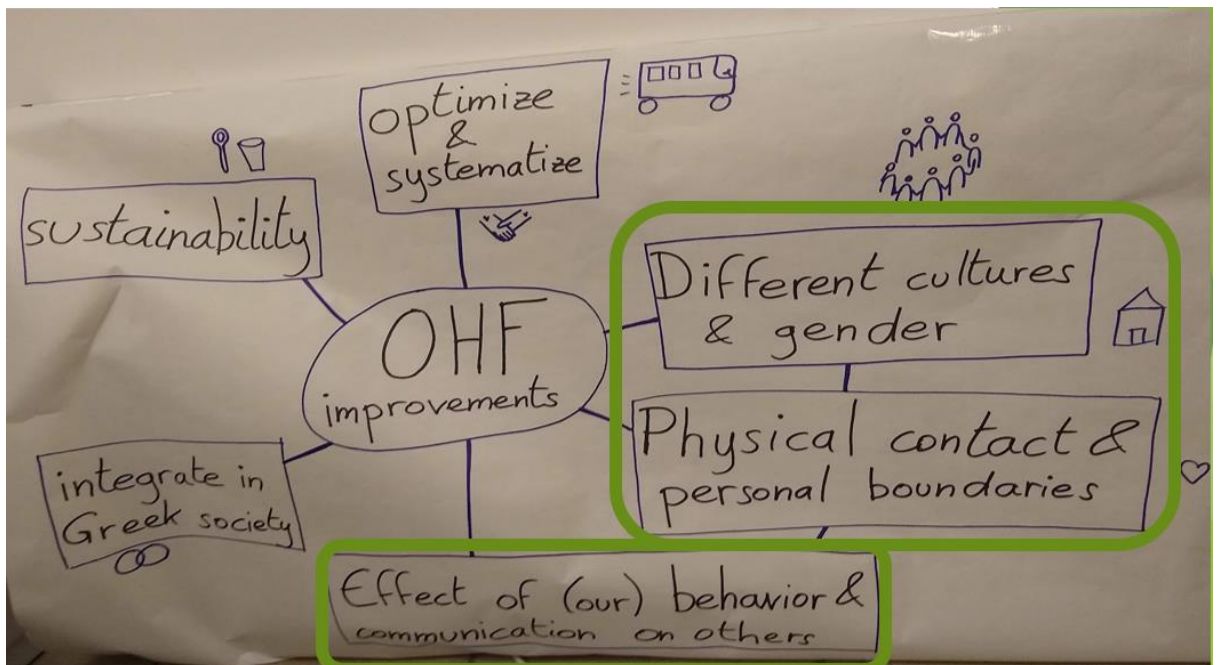 optimize
&
systematize
sustainability
Different cultures
& gender
OHF
improvements
Physical contact &
personal boundaries
integrate in
Greek society
Effect of (our) behavior &
communication on others